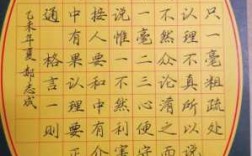 只一毫粗疏处
认理不真所以
不然众论淆之
一毫二三心便守
说惟一不然利害
接人要和中有
中有果认理要正
通 格言一则
乙未年夏 郝志成